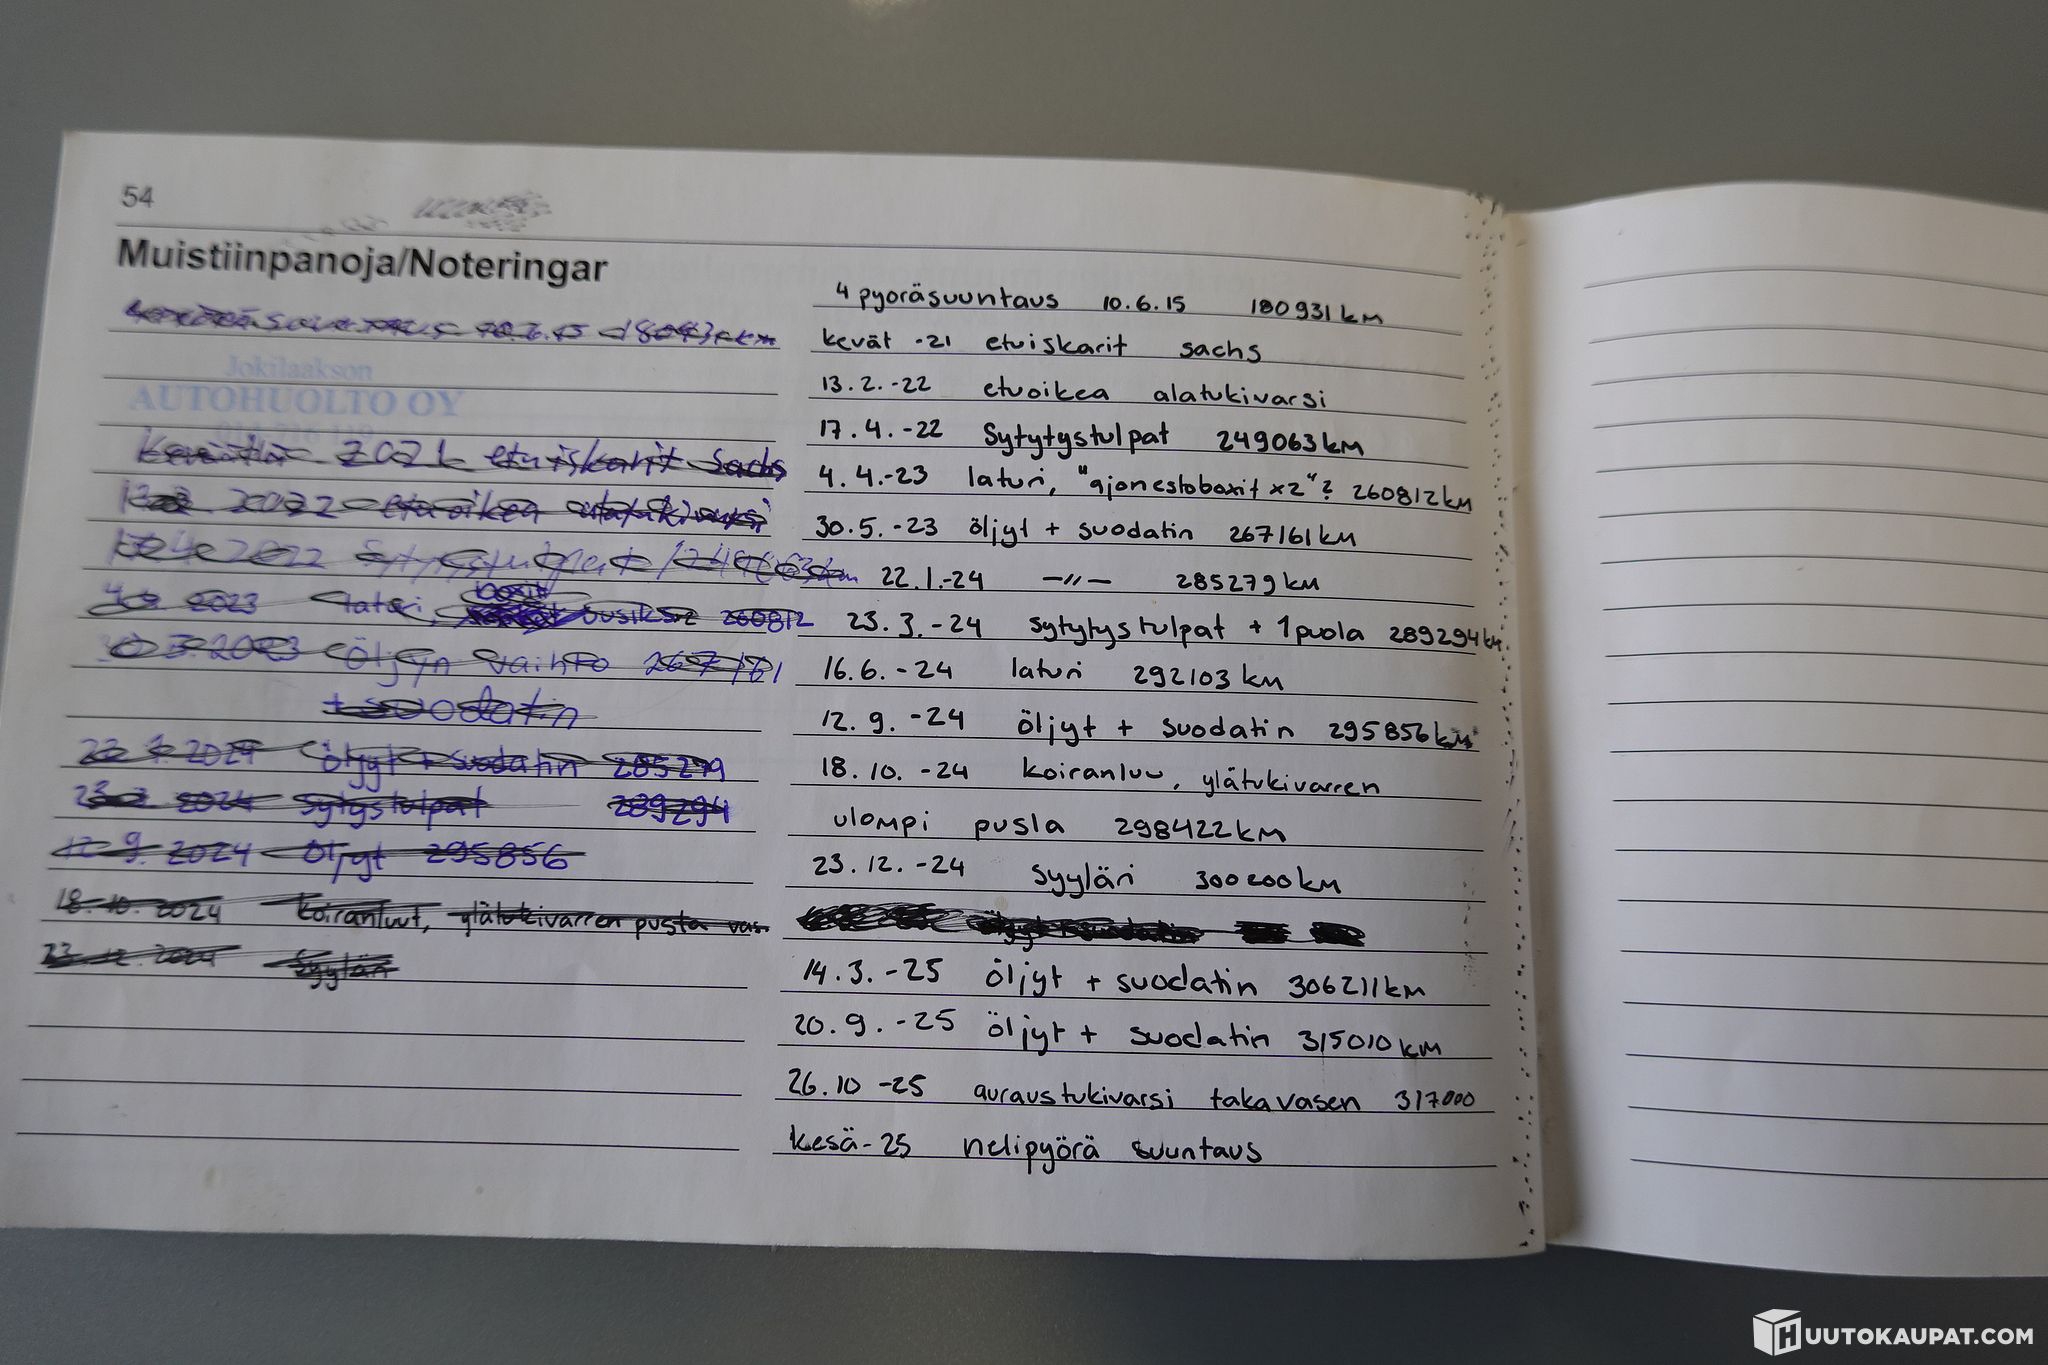 54
Muistiinpanoja/Noteringar
Jokilaakson
AUTOHUOLTO OY
2021 etuiskarit Sachs
2022 etuoikea alatukivarsi
2022 Sytytystulpat
2023 laturi, boxit 260812
2023 Öljyn vaihto 267161
+ suodatin
2024 Öljyt + suodatin 285279
2024 Sytystulpat 289294
12 9. 2024 Öljyt 295856
18. 10. 2024 koiranluut, ylätukivarren pusla vas.
23. 12. 2024 Syylän
4 pyoräsuuntaus 10.6.15 180931 km
kevät -21 etuiskarit sachs
13.2.-22 etuoikea alatukivarsi
17.4.-22 Sytytystulpat 249063km
4.4.-23 laturi, "ajonestoboxit x2"? 260812km
30.5.-23 öljyt + suodatin 267161km
22.1.-24 —//— 285279km
23.3.-24 sytytystulpat + 1 puola 289294km
16.6.-24 laturi 292103 km
12.9.-24 öljyt + suodatin 295856km
18.10.-24 koiranluu, ylätukivarren
ulompi pusla 298422km
23.12.-24 syyläri 300200km
14.3.-25 öljyt + suodatin 306211km
20.9.-25 öljyt + suodatin 315010km
26.10 -25 auraustukivarsi takavasen 317000
kesä-25 nelipyörä suuntaus
HUUTOKAUPAT.COM